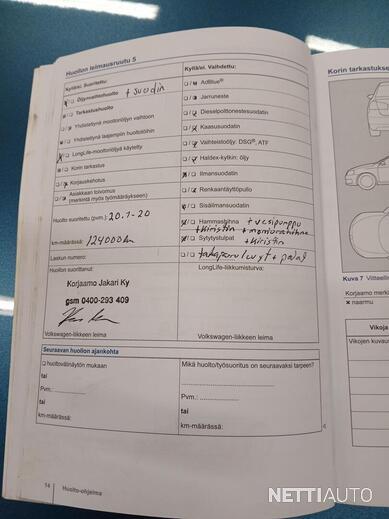 Huollon leimausruutu 5
Kyllä/ei. Suoritettu:
☒/❏ Öljynvaihtohuolto + suodin
☒/❏ Tarkastushuolto
❏/☒ Yhdistettynä moottoriöljyn vaihtoon
❏/☒ Yhdistettynä laajempiin huoltotöihin
☒/❏ LongLife-moottoriöljyä käytetty
❏/❏ Korin tarkastus
❏/☒ Korjauskehotus
❏/☒ Asiakkaan toivomus
(merkintä myös työmääräykseen)
Huolto suoritettu (pvm.) 20.1-20
km-määrässä: 124000km
Laskun numero:
Huollon suorittanut:
Korjaamo Jakari Ky
gsm 0400-293 409
Volkswagen-liikkeen leima
Kyllä/ei. Vaihdettu:
❏/☒ AdBlue®
❏/☒ Jarruneste
❏/☒ Dieselpolttonestesuodatin
❏/☒ Kaasusuodatin
❏/☒ Vaihteistoöljy: DSG®, ATF
❏/☒ Haldex-kytkin: öljy
☒/❏ Ilmansuodatin
❏/☒ Renkaantäyttöpullo
☒/❏ Sisäilmansuodatin
☒/❏ Hammashihna + vesipumppu
+ kiristin + moniurahihna
☒/❏ Sytytystulpat + kiristin
❏/❏ takajarrulevyt + palat
LongLife-liikkumisturva:
Volkswagen-liikkeen leima
Seuraavan huollon ajankohta
❏ huoltovälinäytön mukaan
tai
Pvm.:
tai
km-määrässä:
Mikä huolto/työsuoritus on seuraavaksi tarpeen?
Pvm.:
tai
km-määrässä:
14 Huolto-ohjelma
Korin tarkastukse
Kuva 7
Korjaamo merki
✕ naarmu
Vikoja
Vikojen kuvaus
NETTIAUTO